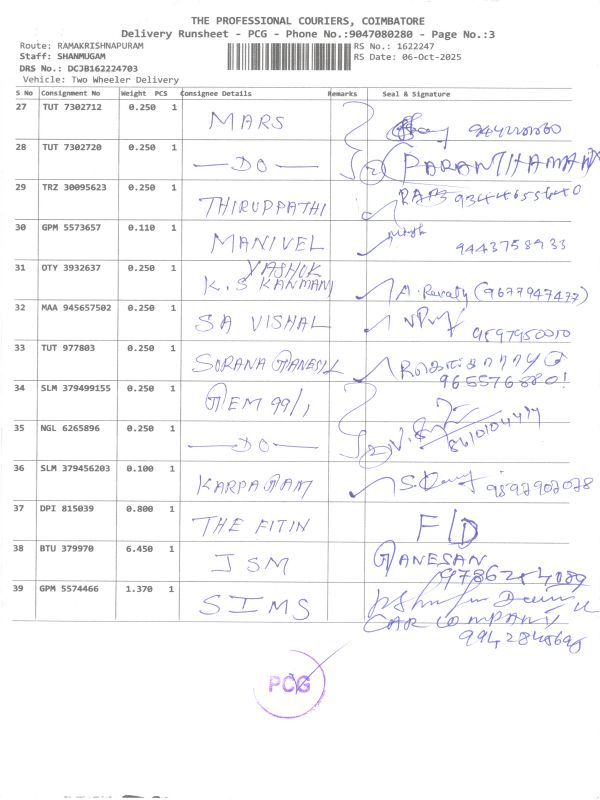 THE PROFESSIONAL COURIERS, COIMBATORE
Delivery Runsheet - PCG - Phone No.:9047080280 - Page No.:3
Route: RAMAKRISHNAPURAM RS No.: 1622247
Staff: SHANMUGAM RS Date: 06-Oct-2025
DRS No.: DCJB162224703
Vehicle: Two Wheeler Delivery
S No Consignment No Weight PCS Consignee Details Remarks Seal & Signature
27 TUT 7302712 0.250 1 MARS
28 TUT 7302720 0.250 1 —DO— 2 PARANTHAMAN
29 TRZ 30095623 0.250 1 THIRUPPATHI
30 GPM 5573657 0.110 1 MANIVEL 9443758933
31 OTY 3932637 0.250 1 YASHIK
K.S KANMANI A. Revathy (9677947477)
32 MAA 945657502 0.250 1 SA VISHAL 9597950010
33 TUT 977803 0.250 1 SORANA GANESH
9655768801
34 SLM 379499155 0.250 1 GEM 99/1
35 NGL 6265896 0.250 1 —DO— 2
36 SLM 379456203 0.100 1 KARPAGAM 9597902028
37 DPI 815039 0.800 1 THE FITIN F/D
38 BTU 379970 6.450 1 JSM GANESAN
39 GPM 5574466 1.370 1 SIMS
CAR COMPANY
PCG